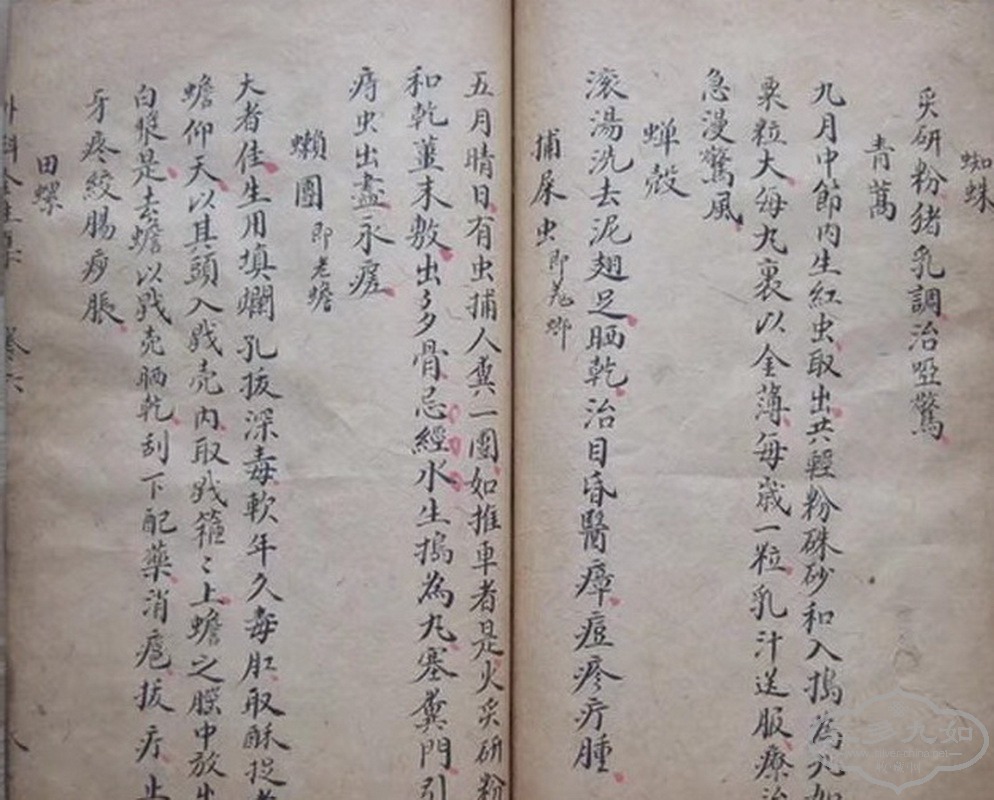 蜘蛛
炙研粉猪乳調治啞驚
青蒿
九月中節内生紅虫取出共輕粉硃砂和入搗為丸如
粟粒大每丸裹以金薄每歲一粒乳汁送服療治
急漫驚風
蟬殼
滚湯洗去泥翅足晒乾治目昏醫瘴痘疹疔腫
捕屎虫即羌螂
五月晴日有虫捕人糞一團如推車者是火炙研粉
和乾薑末敷出多骨忌經水生搗為丸塞糞門引
痔虫出盡永瘥
癩團即老蟾
大者佳生用填爛孔拔深毒軟年久毒肛取酥捉
蟾仰天以其頭入戥壳内取戥箍〻上蟾之腦中放出
白漿是去蟾以戥壳晒乾刮下配藥消疤拔疔止
牙疼絞腸痧脹
田螺
外科全生
八